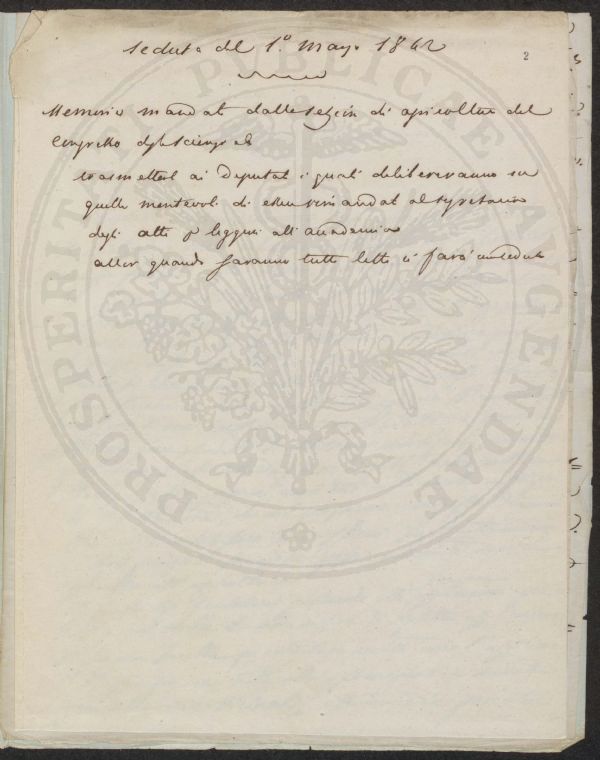 Seduta del 1.° Mag.o 1862
2
Memorie mandate dalla sezion di apicoltura del
Congresso degli Scienziati
trasmetterle ai Deputati i quali delibereranno su
quelle meritevoli di essere rimandate al segretario
degli atti p leggersi all'accademia
allor quando saranno tutte lette si farà
PROSPERITATI PUBLICAE AUGENDAE